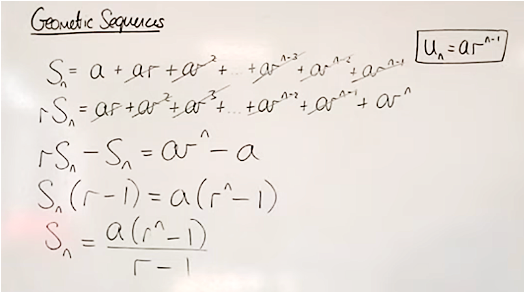 Geometic Sequences
Uₙ = arⁿ⁻¹
Sₙ = a + ar + ar² + ... + arⁿ⁻³ + arⁿ⁻² + arⁿ⁻¹
rSₙ = ar + ar² + ar³ + ... + arⁿ⁻² + arⁿ⁻¹ + arⁿ
rSₙ - Sₙ = arⁿ - a
Sₙ(r - 1) = a(rⁿ - 1)
Sₙ = a(rⁿ - 1) / r - 1